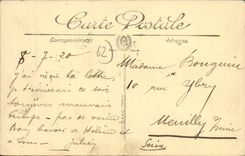 Carte Postale
Correspondance
Adresse
8-7-20
62
Madame Bouquin
10 rue Ybry
Neuilly s/Seine
Seine
J'ai reçu ta lettre
je t'écrirai ce soir
toujours mauvais
temps - pas de
Bon baiser à
à tous